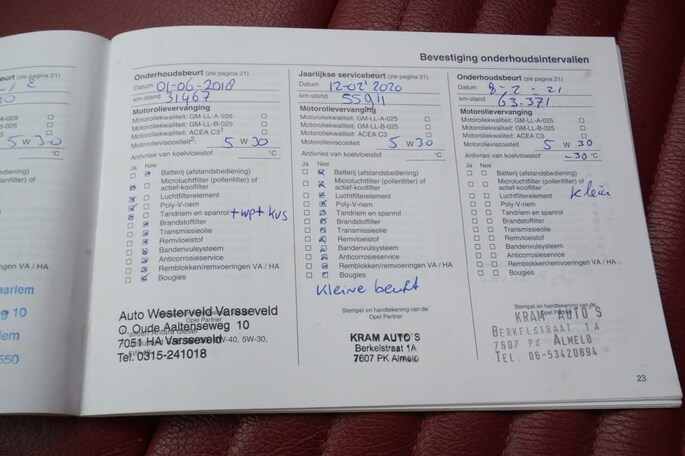 Bevestiging onderhoudsintervallen
Onderhoudsbeurt (zie pagina 21)
Datum 01-06-2018
km-stand 31467
Motorolievervanging
Motoroliekwaliteit: GM-LL-A-025
Motoroliekwaliteit: GM-LL-B-025
Motoroliekwaliteit: ACEA C3
Motorolieviscositeit 5 W 30
Antivries van koelvloeistof °C
Ja Nee
Batterij (afstandsbediening)
Microluchtfilter (pollenfilter) of
actief-koolfilter
Luchtfilterelement
Poly-V-riem
Tandriem en spanrol + wpt kvs
Brandstoffilter
Transmissieolie
Remvloeistof
Bandenvulsysteem
Anticorrosieservice
Remblokken/remvoeringen VA / HA
Bougies
Opel Partner
Auto Westerveld Varsseveld
O. Oude Aaltenseweg 10
7051 HA Varsseveld
Tel. 0315-241018
W-40, 5W-30,
Jaarlijkse servicebeurt (zie pagina 21)
Datum 12-02'2020
km-stand 55911
Motorolievervanging
Motoroliekwaliteit: GM-LL-A-025
Motoroliekwaliteit: GM-LL-B-025
Motoroliekwaliteit: ACEA C3
Motorolieviscositeit 5 W 30
Antivries van koelvloeistof °C
Ja Nee
Batterij (afstandsbediening)
Microluchtfilter (pollenfilter) of
actief-koolfilter
Luchtfilterelement
Poly-V-riem
Tandriem en spanrol
Brandstoffilter
Transmissieolie
Remvloeistof
Bandenvulsysteem
Anticorrosieservice
Remblokken/remvoeringen VA / HA
Bougies
Kleine beurt
Stempel en handtekening van de
Opel Partner
KRAM AUTO'S
Berkelstraat 1A
7607 PK Almelo
Onderhoudsbeurt (zie pagina 21)
Datum 8-2-21
km-stand 63.371
Motorolievervanging
Motoroliekwaliteit: GM-LL-A-025
Motoroliekwaliteit: GM-LL-B-025
Motoroliekwaliteit: ACEA C3
Motorolieviscositeit 5 W 30
Antivries van koelvloeistof -30 °C
Ja Nee
Batterij (afstandsbediening)
Microluchtfilter (pollenfilter) of
actief-koolfilter
Luchtfilterelement klein
Poly-V-riem
Tandriem en spanrol
Brandstoffilter
Transmissieolie
Remvloeistof
Bandenvulsysteem
Anticorrosieservice
Remblokken/remvoeringen VA / HA
Bougies
Stempel en handtekening van de
KRAM AUTO'S
BERKELSTRAAT 1A
7607 PK ALMELO
TEL. 06-53420894
23